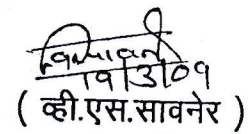 19/3/09
( व्ही.एस.सावनेर )